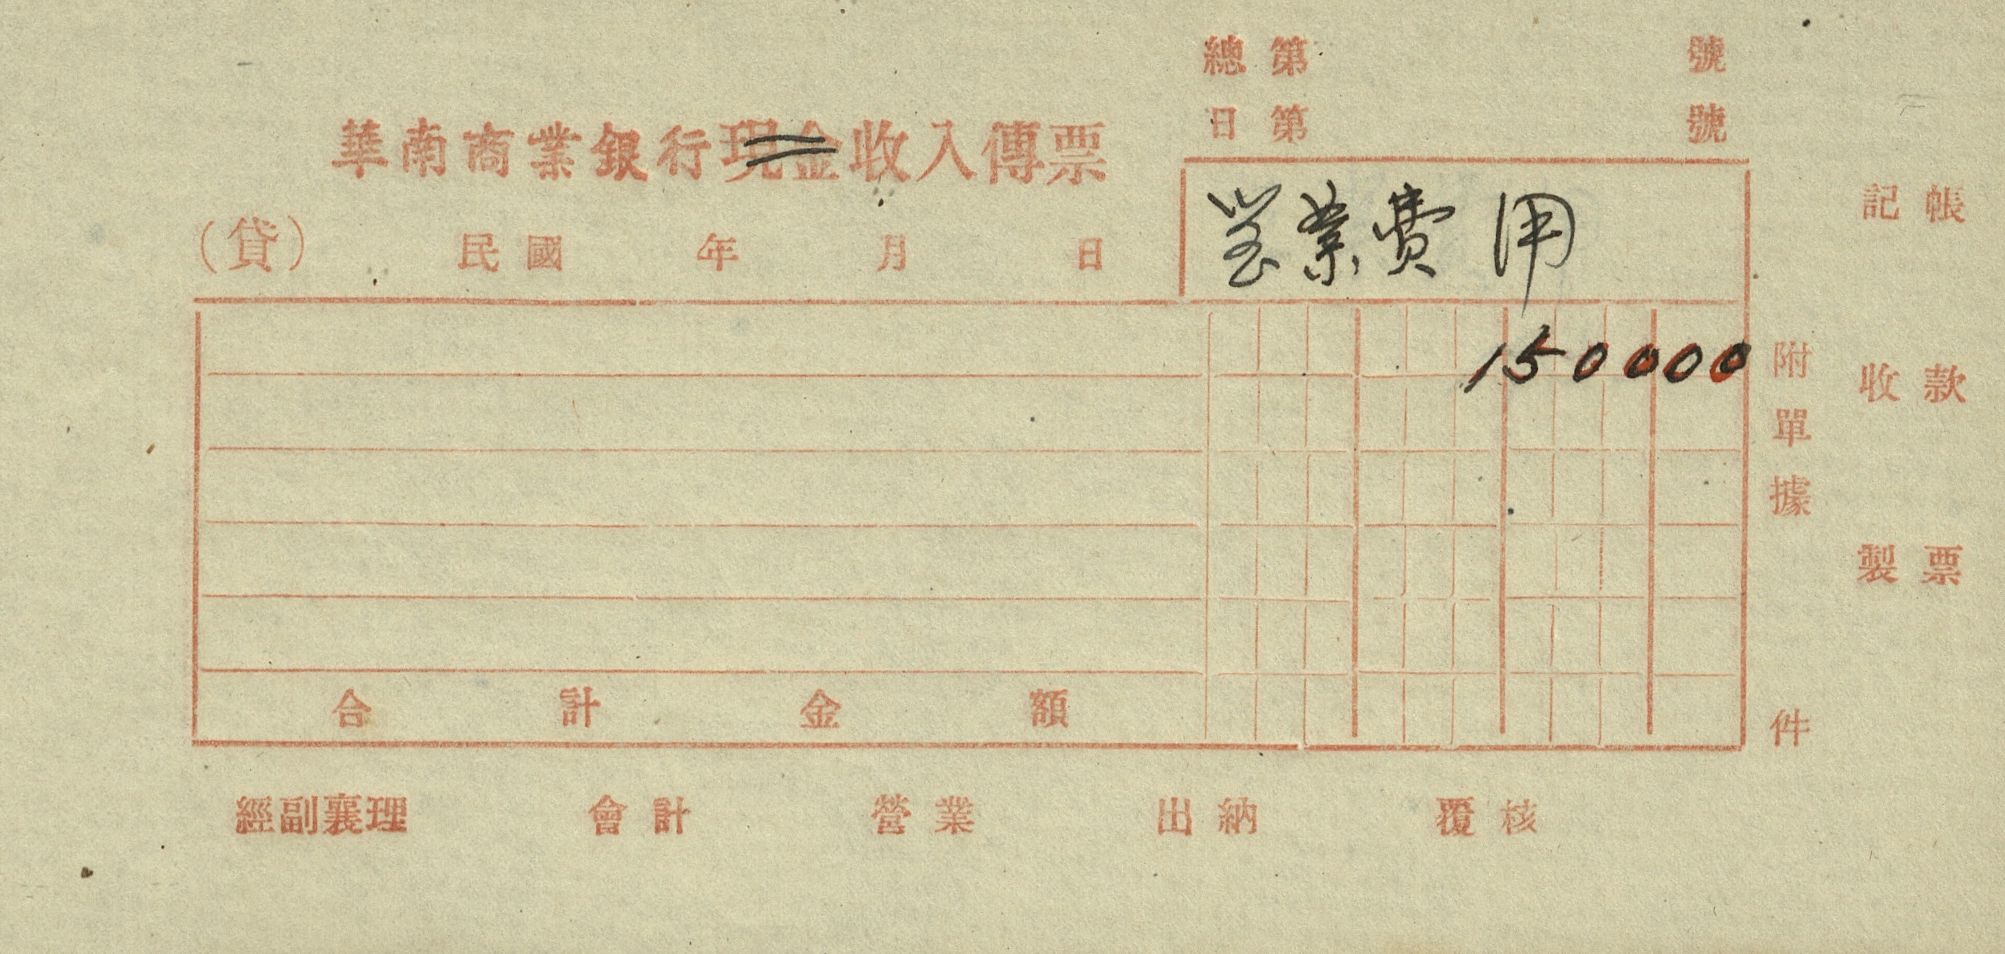 總第 號
日第 號
華南商業銀行現金收入傳票
(貸) 民國 年 月 日
營業費用
150000
合計金額
附單據 件
記帳
收款
製票
經副襄理 會計 營業 出納 覆核